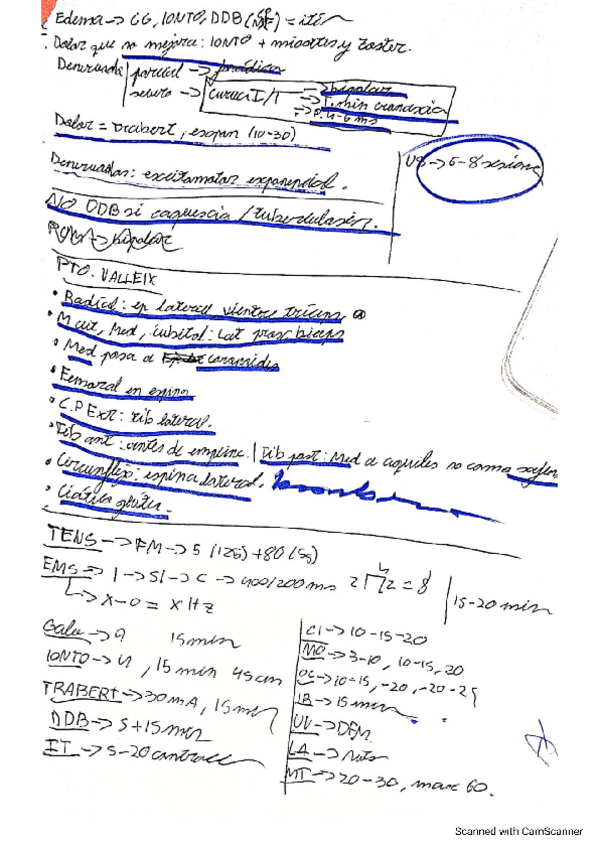 Edema → GG, IONTO, DDB
Dolor que no mejora: IONTO + mioartes y raster.
Denervada parcial →
severo → Curva I/T → bipolar
→ I. min
→ P. 4-6 ms
Dolor = trabert, esopan (10-30)
U8 → 6-8 sesiones
Denervados: excitomotor exponencial.
NO DDB si caquexia / tuberculosis.
→ bipolar
PTO. VALLEIX
• Radial: ep lateral, vientre tríceps
• M cut, Med, cubital: Lat prox bíceps
• Med pasa a
• Femoral en espina
• C.P Ext: tib lateral.
• Tib ant: antes de empeine. | Tib post: Med a aquiles no como safen
• Circunflejo: espina lateral.
• Ciático glúteo.
TENS → FM → 5 (125) + 80 (5s)
EMS → 1 → SI → C → 400/200 ms 2 4 2 = 8 | 15-20 min
↳ X-0 = X Hz
Galv → 15 min
IONTO → 4, 15 min 45 cm
TRABERT → 30 mA, 15 min
DDB → 5 + 15 min
IT → 5-20
CI → 10-15-20
MO → 3-10, 10-15, 20
OC → 10-15, -20, -20-25
IB → 15 min
UV → DEM
LA →
MT → 20-30, max 60.
Scanned with CamScanner